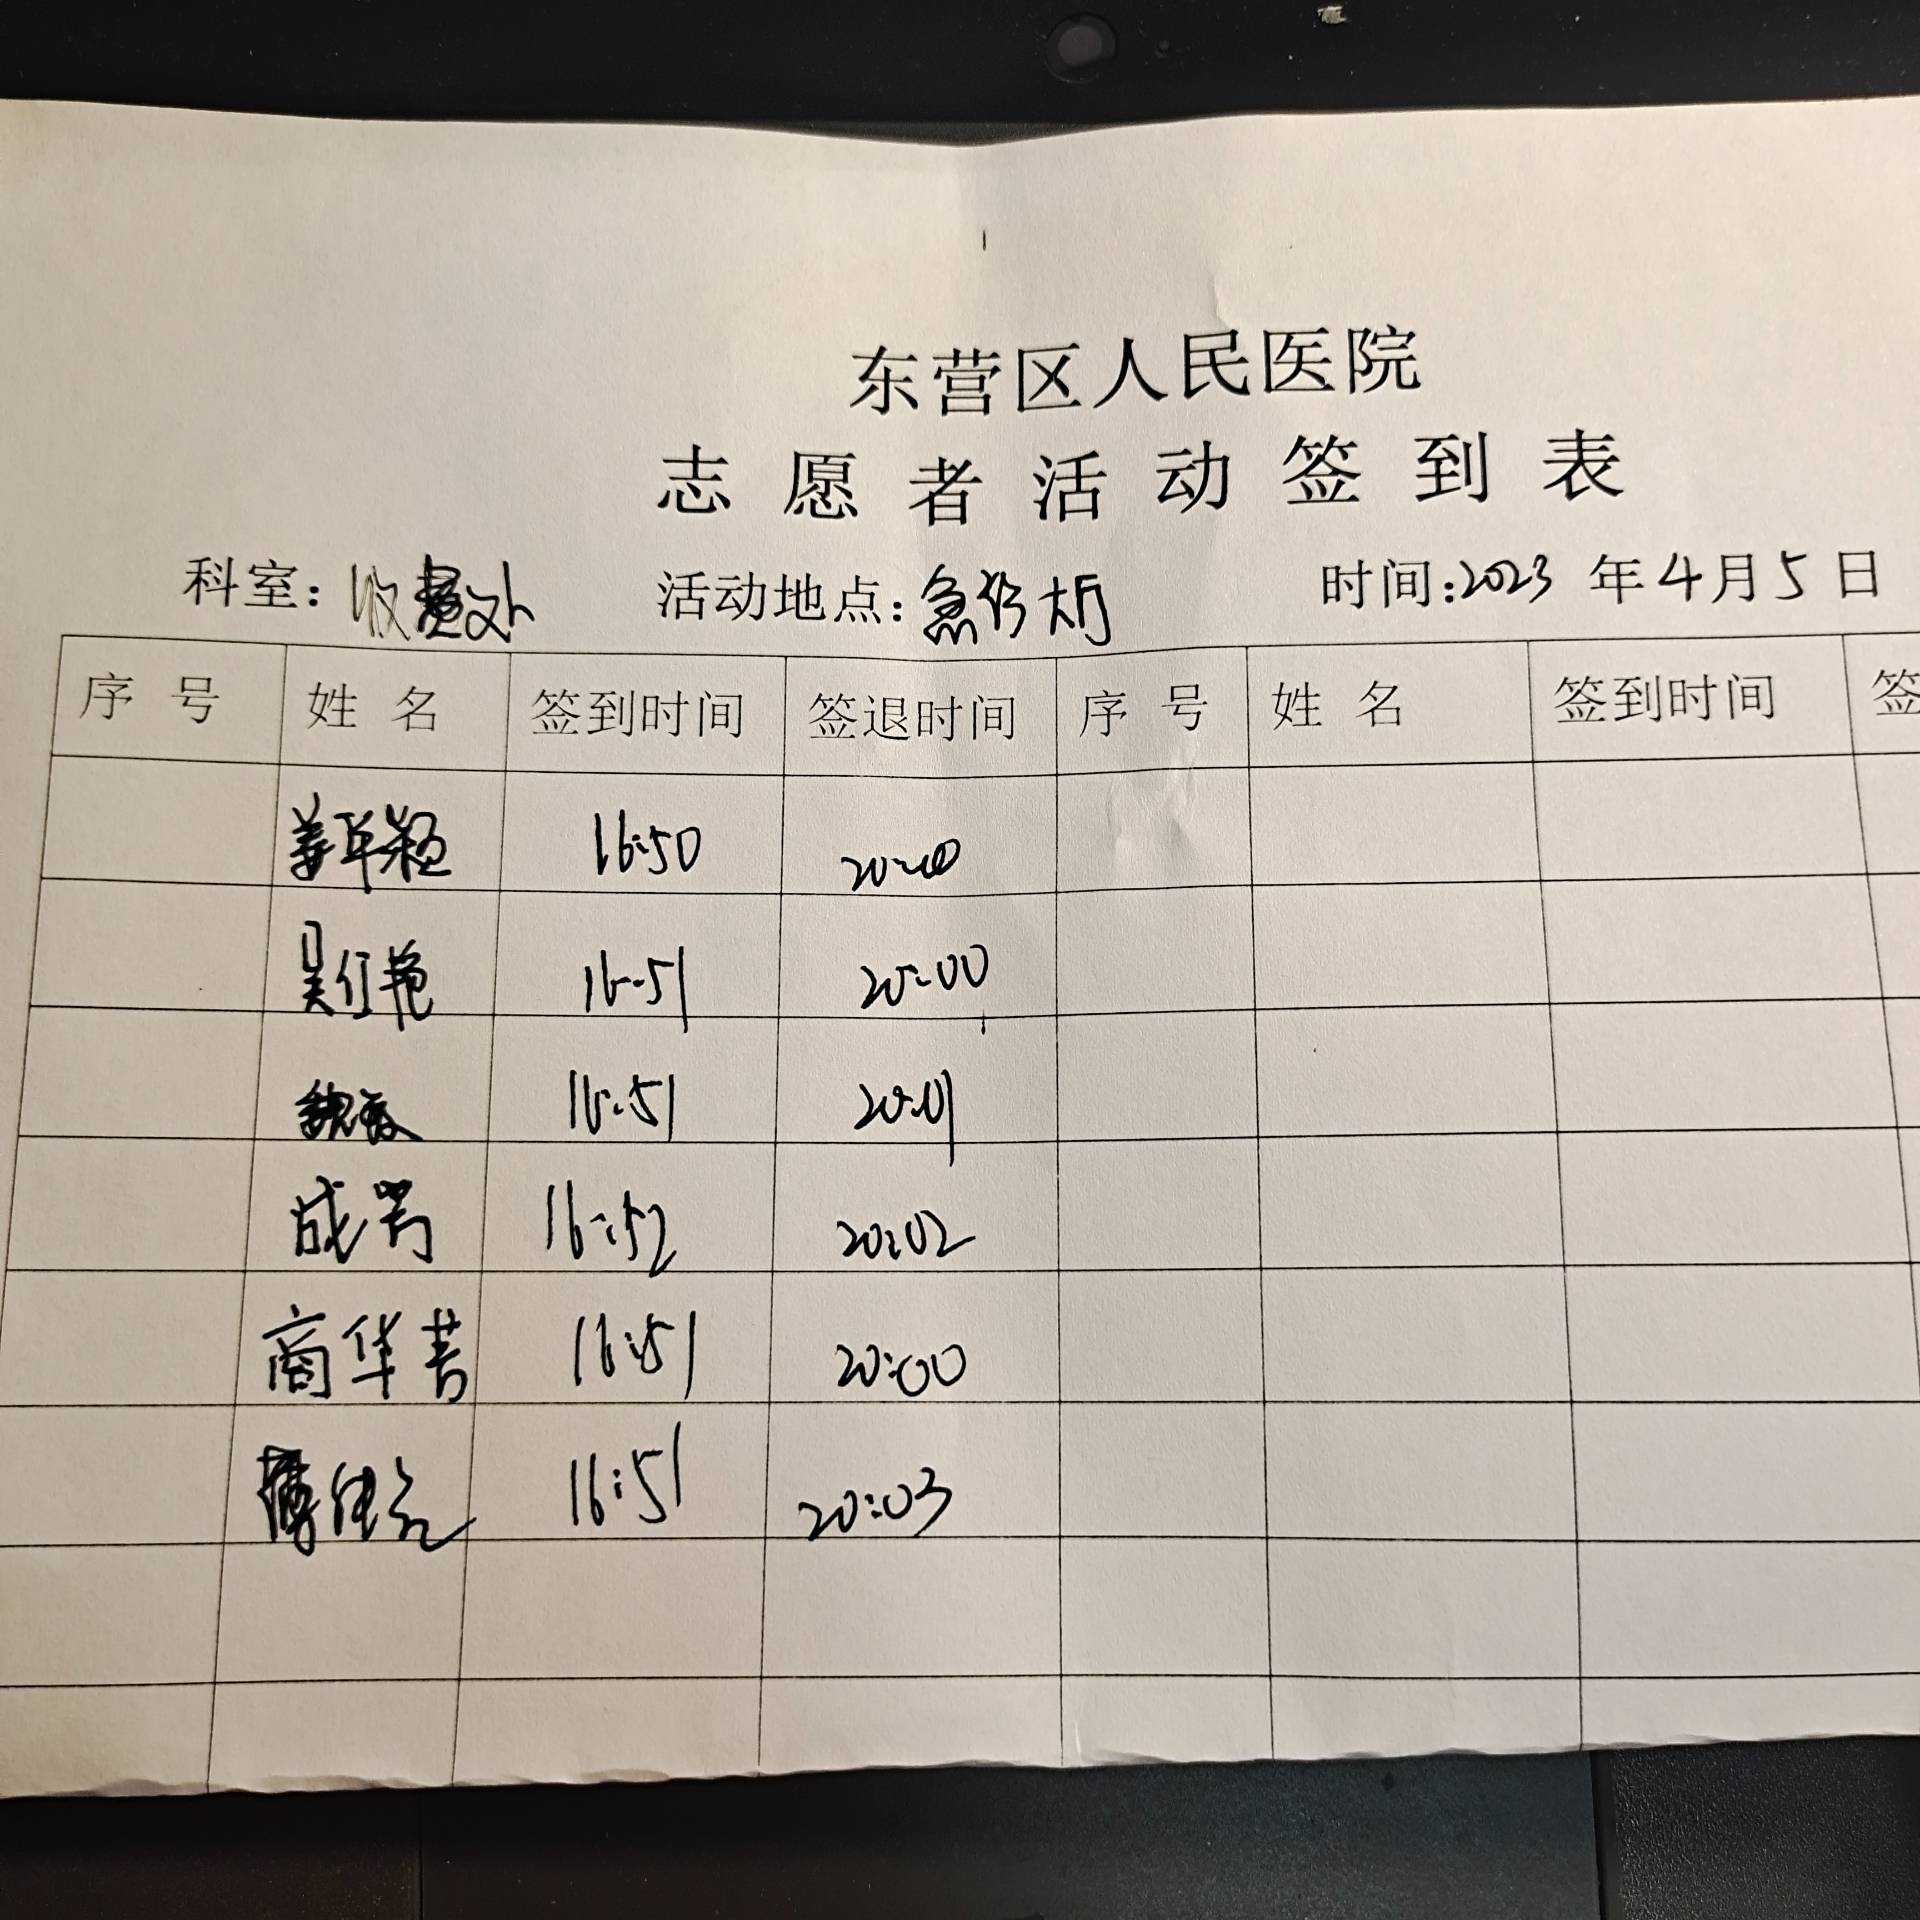 东营区人民医院
志愿者活动签到表
科室：收费处 活动地点：急诊大厅 时间：2023年4月5日
序号 姓名 签到时间 签退时间 序号 姓名 签到时间 签
16:50 20:00
吴红艳 16:51 20:00
魏敏 16:51 20:01
16:52 20:02
商华菁 16:51 20:00
16:51 20:03